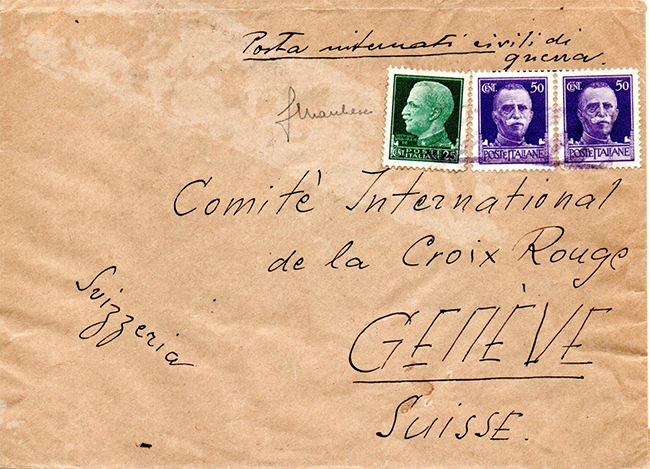 Posta internati civili di
guerra.
CENT. 50
CENT. 50
POSTE
ITALIANE
CENT. 25
POSTE ITALIANE
POSTE ITALIANE
Comitè International
de la Croix Rouge
Svizzeria
GENÈVE
SUISSE.